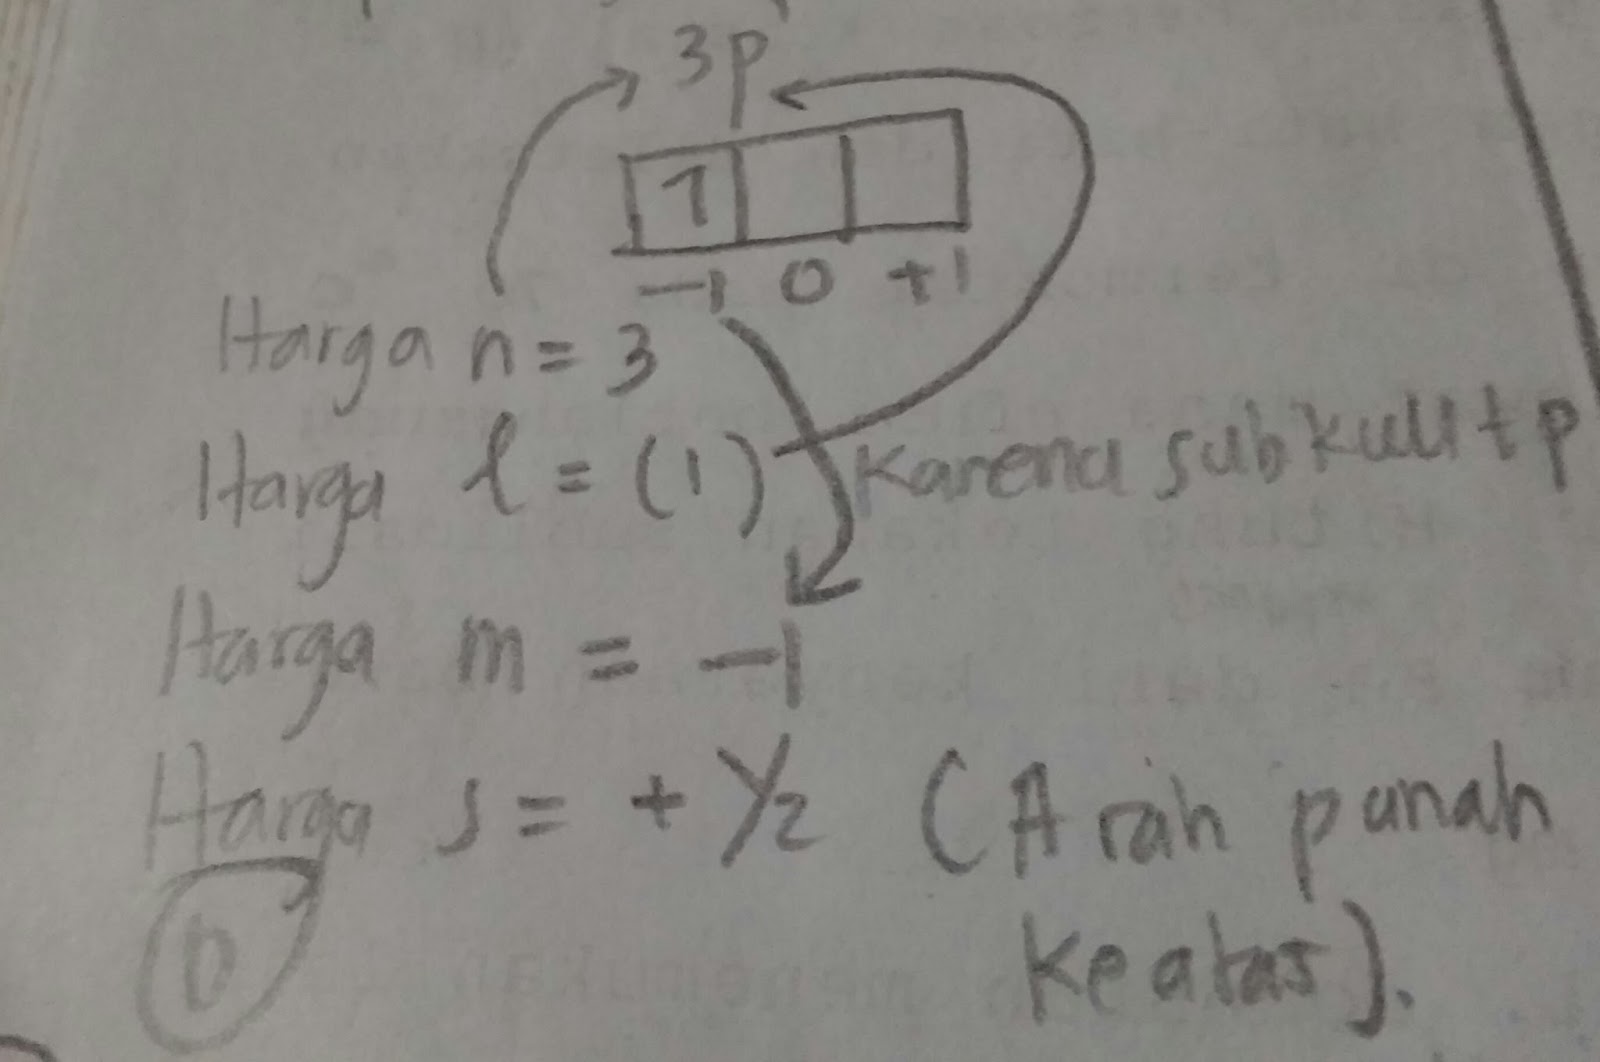 3p
1
-1 0 +1
Harga n = 3
Harga l = (1) Karena subkulit p
Harga m = -1
Harga s = + 1/2 (Arah panah
Keatas).
D